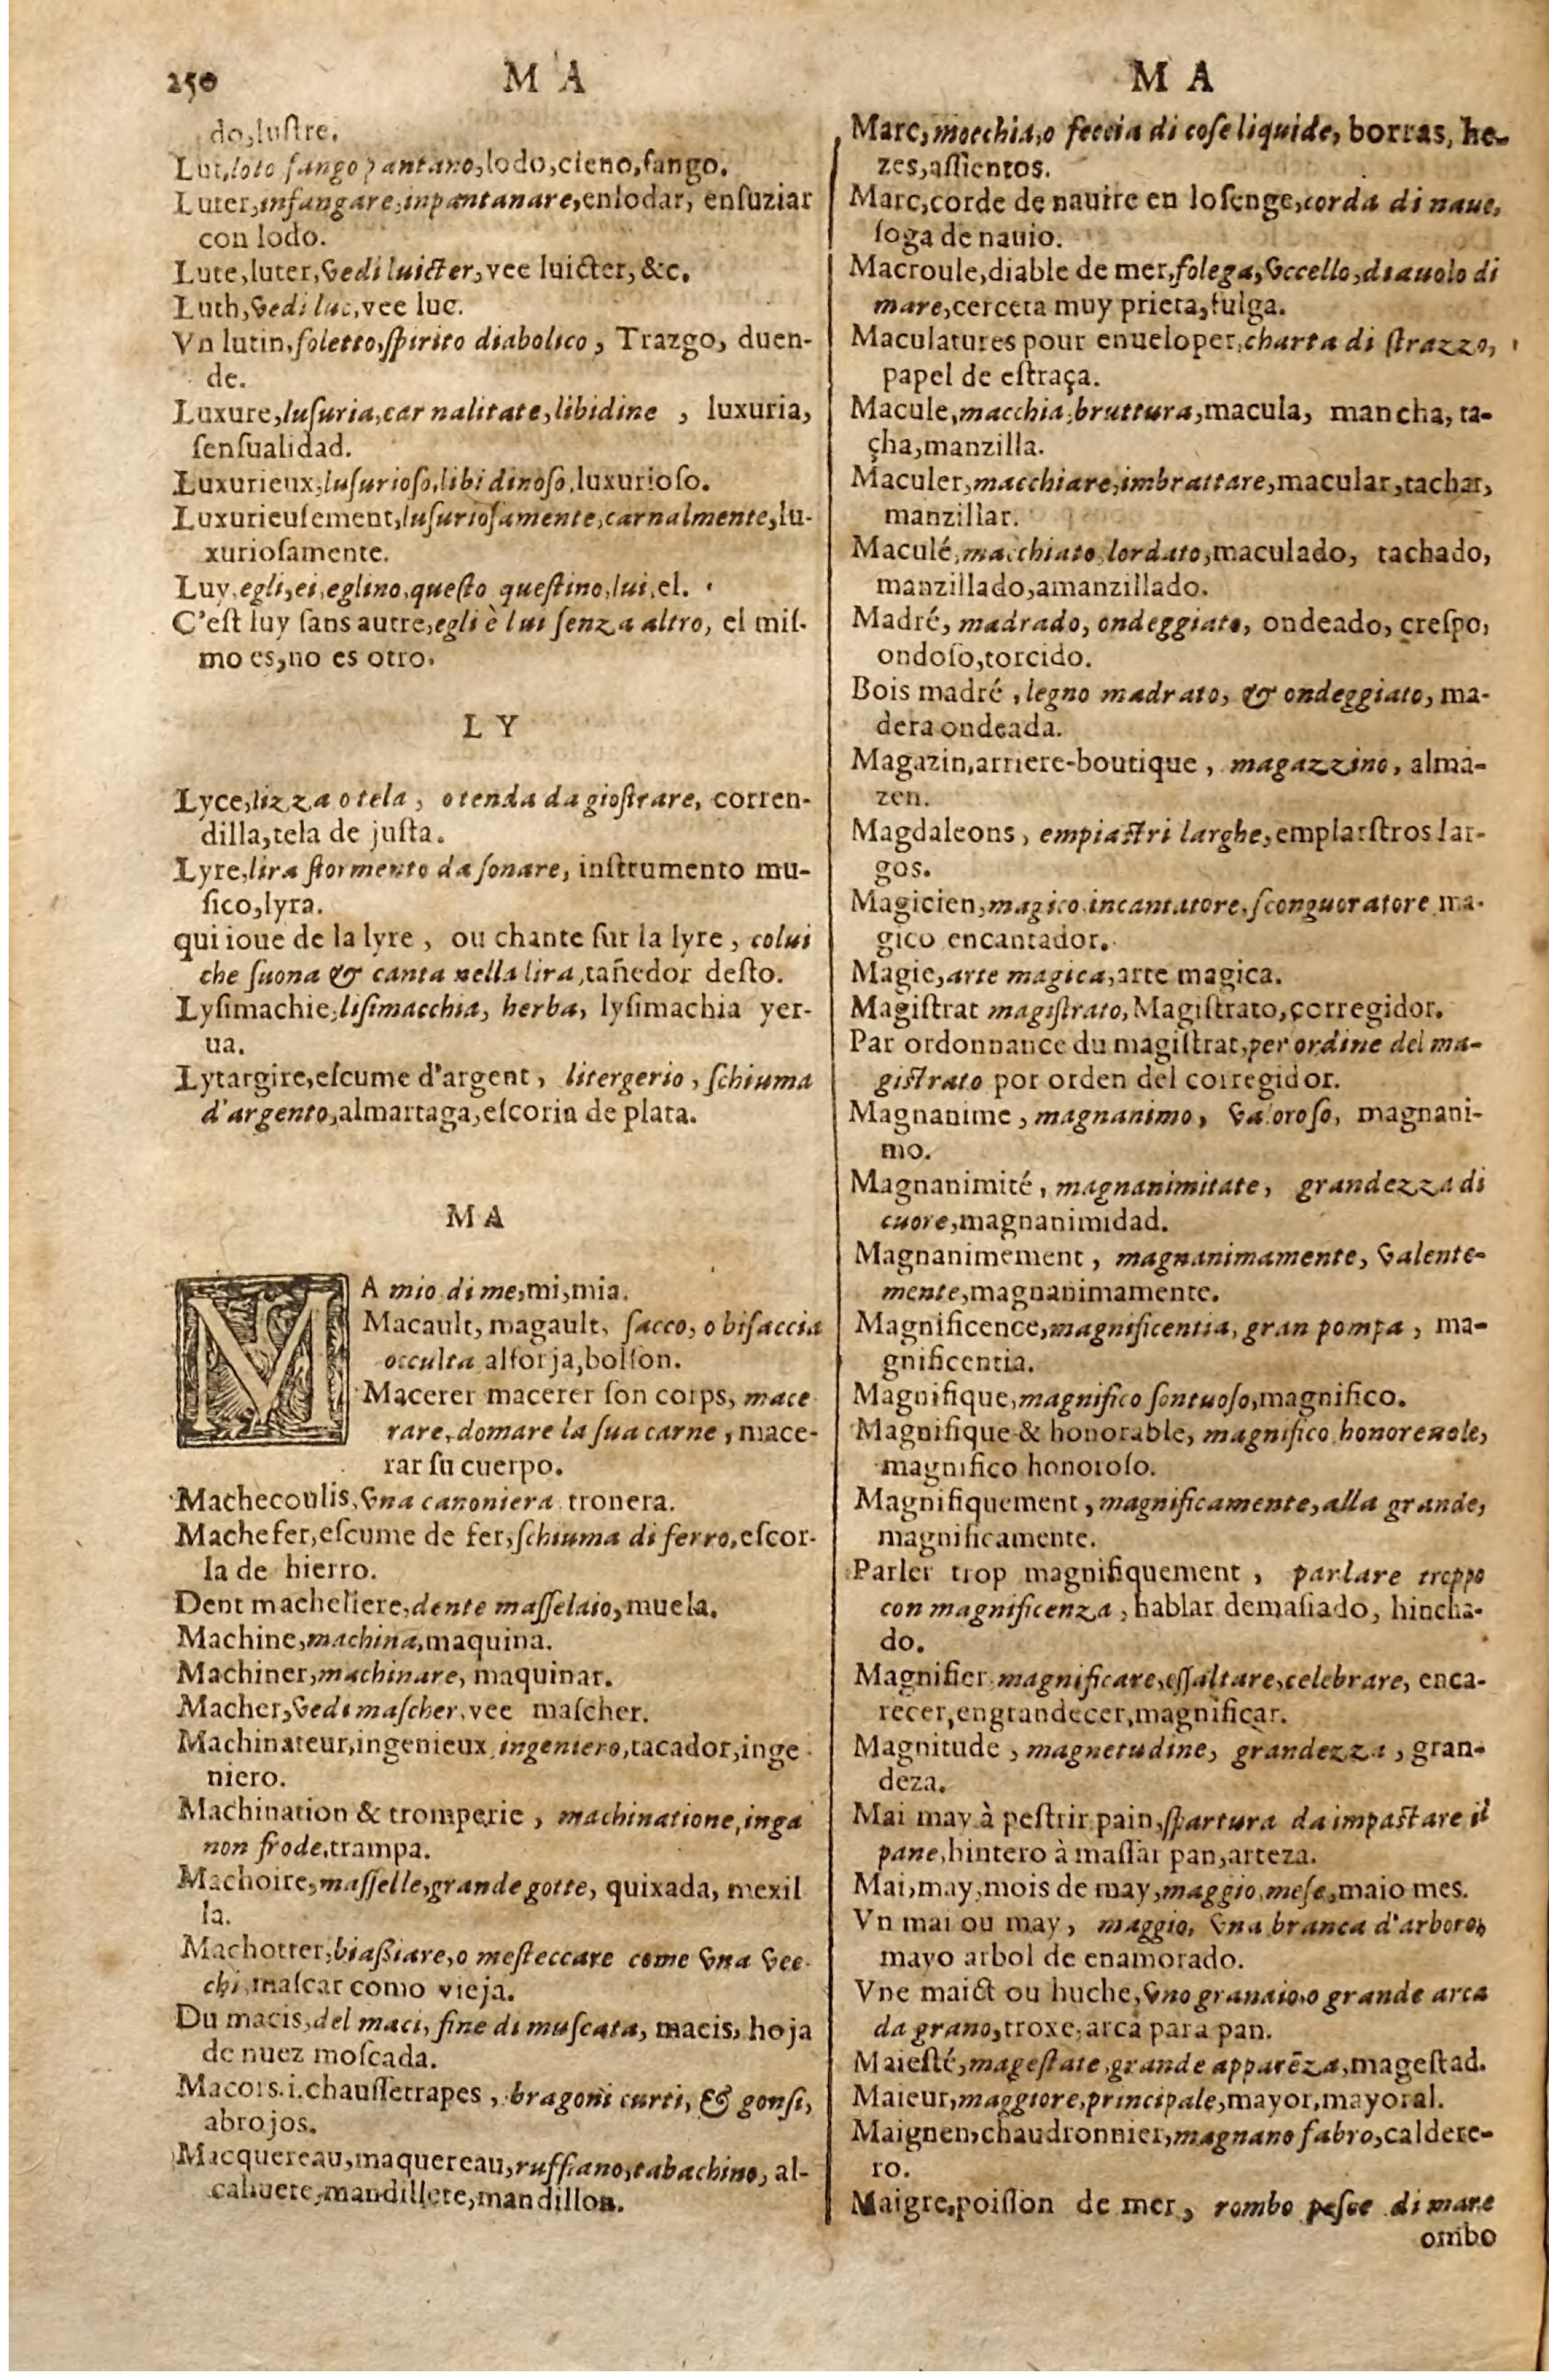 250 M A
do,luſtre.
Lut,loto fango pantano,lodo,cieno,fango.
Luter,infangare,inpantanare,enlodar, enſuziar
con lodo.
Lute,luter,vedi luicter,vee luicter, &c.
Luth,vedi luc,vee luc.
Vn lutin,foletto,ſpirito diabolico, Trazgo, duen-
de.
Luxure,luſuria,carnalitate,libidine , luxuria,
ſenſualidad.
Luxurieux,luſurioſo,libidinoſo,luxurioſo.
Luxurieuſement,luſurioſamente,carnalmente,lu-
xurioſamente.
Luy,egli,ei,eglino,queſto queſtino,lui,el.
C'eſt luy ſans autre,egli è lui ſenza altro, el miſ-
mo es,no es otro.
L Y
Lyce,lizza o tela , o tenda da gioſtrare, corren-
dilla,tela de juſta.
Lyre,lira ſtormento da ſonare, inſtrumento mu-
ſico,lyra.
qui ioue de la lyre , ou chante ſur la lyre , colui
che ſuona & canta nella lira,tañedor deſto.
Lyſimachie,liſimacchia, herba, lyſimachia yer-
ua.
Lytargire,eſcume d'argent , litergerio , ſchiuma
d'argento,almartaga,eſcoria de plata.
M A
MA mio di me,mi,mia.
Macault, magault, ſacco, o biſaccia
occulta alforja,bolſon.
Macerer macerer ſon corps, mace
rare, domare la ſua carne , mace-
rar ſu cuerpo.
Machecoulis,vna canoniera tronera.
Machefer,eſcume de fer,ſchiuma di ferro,eſcor-
la de hierro.
Dent macheliere,dente maſſelaio,muela.
Machine,machina,maquina.
Machiner,machinare, maquinar.
Macher,vedi maſcher,vee maſcher.
Machinateur,ingenieux,ingeniero,tacador,inge-
niero.
Machination & tromperie , machinatione,inga
non frode,trampa.
Machoire,maſſelle,grande gotte, quixada, mexil
la.
Machotter,biaßiare,o meſteccare come vna vec-
chi,maſcar como vieja.
Du macis,del maci, fine di muſcata, macis, hoja
de nuez moſcada.
Macois.i.chauſſetrapes , bragoni curti, & gonfi,
abrojos.
Macquereau,maquereau,ruffiano,tabachino, al-
cahuete,mandillete,mandillon.
M A
Marc,mocchia,o feccia di coſe liquide, borras, he-
zes,aſſientos.
Marc,corde de nauire en loſenge,corda di naue,
ſoga de nauio.
Macroule,diable de mer,folega,vccello,diauolo di
mare,cerceta muy prieta,fulga.
Maculatures pour enueloper,charta di ſtrazzo,
papel de eſtraça.
Macule,macchia,bruttura,macula, mancha, ta-
çha,manzilla.
Maculer,macchiare,imbrattare,macular,tachar,
manzillar.
Maculé,macchiato,lordato,maculado, tachado,
manzillado,amanzillado.
Madré, madrado, ondeggiato, ondeado, creſpo,
ondoſo,torcido.
Bois madré , legno madrato, & ondeggiato, ma-
dera ondeada.
Magazin,arriere-boutique , magazzino, alma-
zen.
Magdaleons , empiaſtri larghe,emplarſtros lar-
gos.
Magicien,magico incantatore,ſconguoratore ma-
gico encantador.
Magie,arte magica,arte magica.
Magiſtrat magiſtrato,Magiſtrato,corregidor.
Par ordonnance du magiſtrat,per ordine del ma-
giſtrato por orden del corregidor.
Magnanime , magnanimo, valoroſo, magnani-
mo.
Magnanimité , magnanimitate, grandezza di
cuore,magnanimidad.
Magnanimement , magnanimamente, valente-
mente,magnanimamente.
Magnificence,magnificentia, gran pompa , ma-
gnificentia.
Magnifique,magnifico ſontuoſo,magnifico.
Magnifique & honorable, magnifico honoreuole,
magnifico honoroſo.
Magnifiquement , magnificamente,alla grande,
magnificamente.
Parler trop magnifiquement , parlare troppo
con magnificenza , hablar demaſiado, hincha-
do.
Magnifier magnificare,eſſaltare,celebrare, enca-
recer,engrandecer,magnificar.
Magnitude , magnetudine, grandezza , gran-
deza.
Mai may à peſtrir pain,ſpartura da impaſtare il
pane,hintero à maſſar pan,arteza.
Mai,may,mois de may,maggio,meſe,maio mes.
Vn mai ou may , maggio, vna branca d'arboro,
mayo arbol de enamorado.
Vne maict ou huche,vno granaio,o grande arca
da grano,troxe,arca para pan.
Maieſté,mageſtate,grande apparēza,mageſtad.
Maieur,maggiore,principale,mayor,mayoral.
Maignen,chaudronnier,magnano fabro,caldere-
ro.
Maigre,poiſſon de mer, rombo peſce di mare
ombo